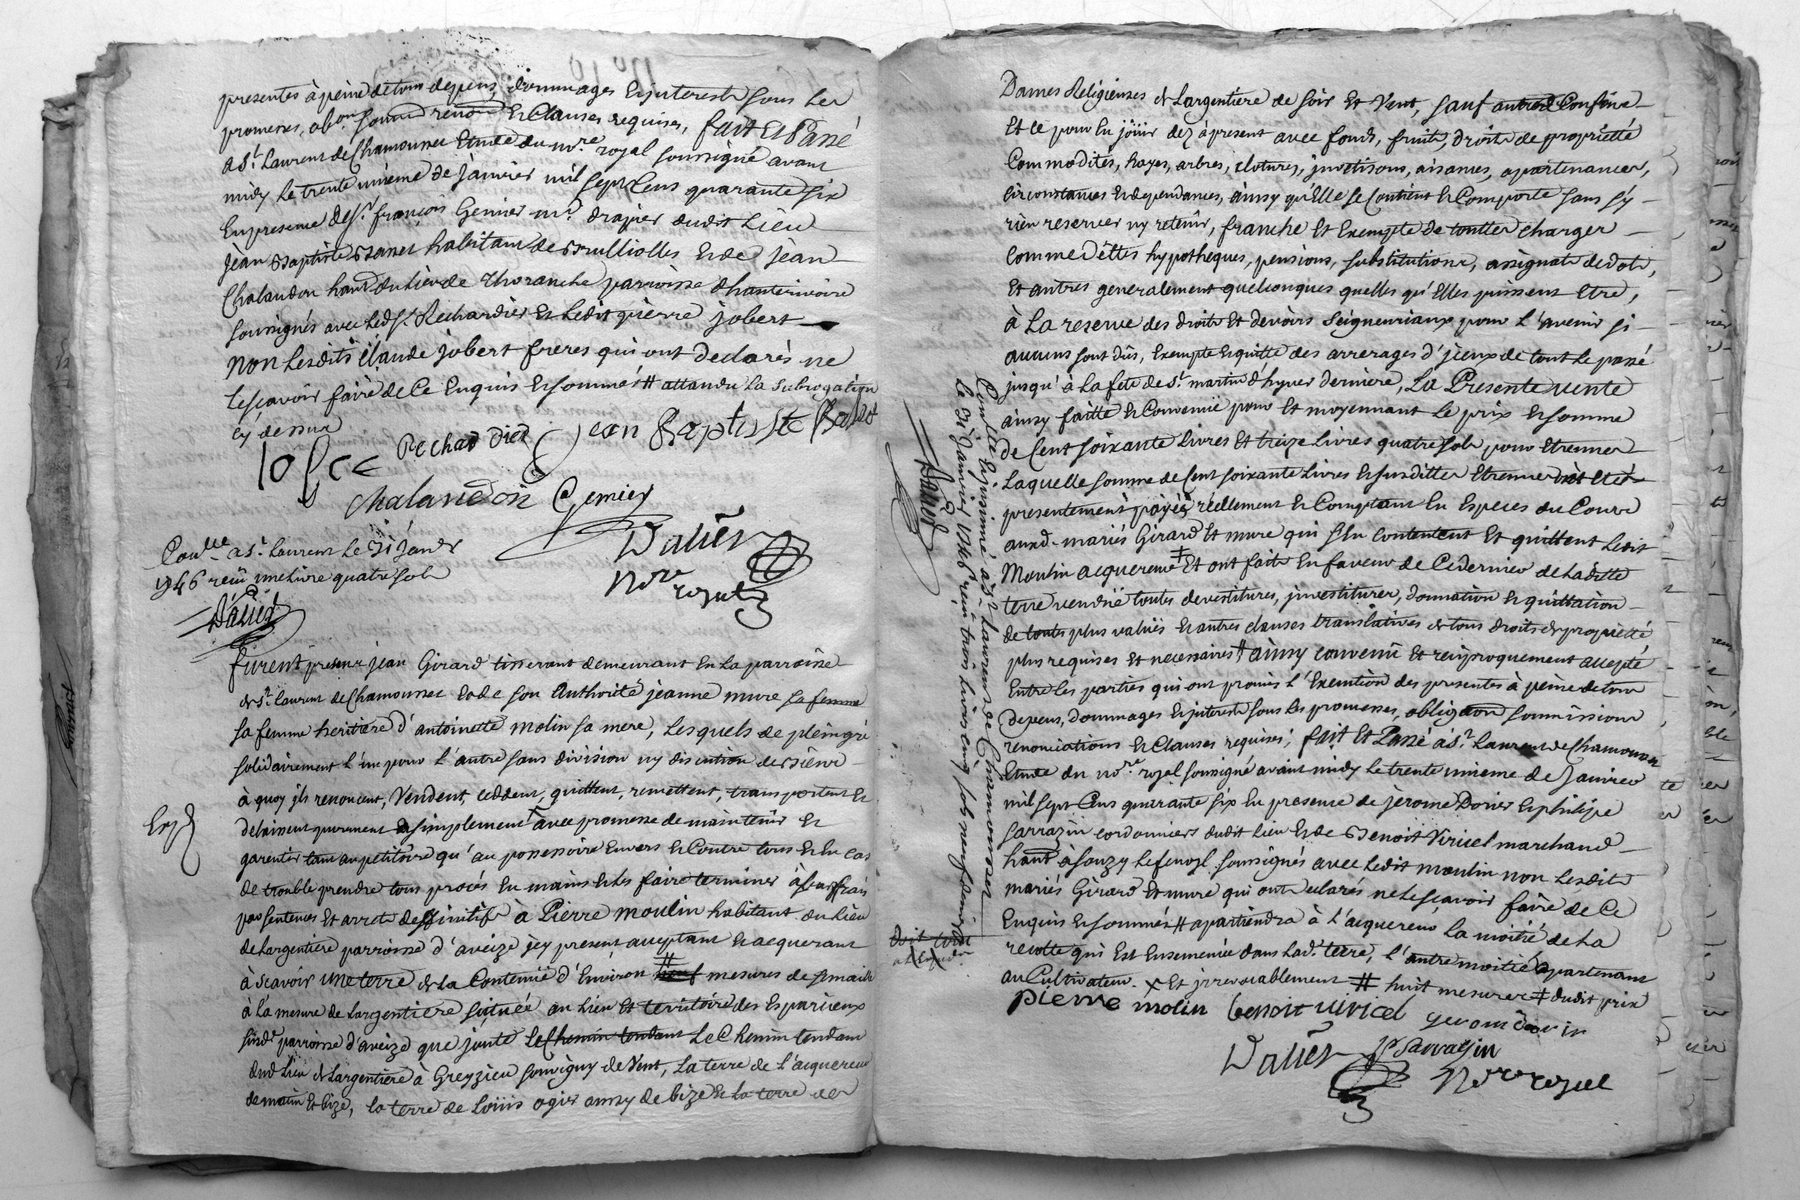 presentes à peine de tous depens, dommages Et interests sous Les
promesses, obon soumon renon Et Clauses requises, fait Et Passé
a St. Laurent de Chamousset Etude du nore royal soussigné avant
midy le trente unieme de janvier mil sept Cens quarante six
En presence de Sr. françois Gemier md. drapier dudit Lieu
jean Baptiste habitant de Brulliolles Et de jean
Chalandon hant du lieu de Thoranche parroisse d'hauterivoire
soussignés avec Ledt Sr. Rechardier Et Ledit pierre jobert
non Lesdits Claude jobert freres qui ont declarés ne
Le sçavoir faire de Ce Enquis Et sommés # attandu La subrogation
cy dessus
Rechardier Jean Baptiste
Chalandon Gemier
Dalier
Nore royal
Conlle a St. Laurent Le 31 janvr
1746 reçu une livre quatre sols
Dalier
furent presens jean Girard tisserant demeurant En La parroisse
de St. Laurent de Chamousset Et de son Authorité jeanne mure sa femme
sa femme heritiere d'antoinette molin sa mere, Lesquels de plein gré
solidairement L'un pour L'autre sans division ny discution
à quoy ils renoncent, Vendent, ceddent, quittent, remettent, transportent Et
delaissent purement Et simplement avec promesse de maintenir Et
Exp
garentir tant au petitoire qu'au possessoire Envers Et Contre tous Et En cas
de trouble prendre tous procés En mains Et Les faire terminer à leurs frais
par sentences Et arrets deffinitifs à Pierre moulin habitant du Lieu
de Largentiere parroisse d'aveize jcy present acceptant Et acquerant
à sçavoir une terre de La Contenüe d'Environ # mesures de semaille
à La mesure de Largentiere située au Lieu Et territoire des Esparieux
susde parroisse d'aveize que jouste Le Chemin tendant Le Chemin tendant
dud Lieu de Largentiere à Greyzieu souvigny de Vent, La terre de L'acquereur
de matin Et bize, La terre de Loüis ogier aussy de bize Et La terre des
Dames Religieuses de Largentiere de soir Et Vent, sauf
Et Ce pour En joüir dez à present avec fonds, fruits, droits de proprietté
Commodités, hayes, arbres, clotures, jnvetisons, aisances, apartenances,
circonstances Et dependances, ainsy qu'Elle se Contient Et Comporte sans s'y
rien reserver ny retenir, franche Et Exempte de touttes charges
Comme dettes hypotheques, pensions, substitutions, assignats de dots,
Et autres generalement quelconques quelles qu'Elles puissent Etre,
à La reserve des droits Et devoirs seigneuriaux pour L'avenir si
aucuns sont dûs, Exempte Et quitte des arrerages d'jceux de tout Le passé
jusqu'à La fete de St. martin d'hyver derniere, La Presente vente
ainsy faitte Et Convenüe pour Et moyennant Le prix Et somme
de Cent soixante Livres Et treize Livres quatre sols pour Etrenne
Laquelle somme de Cent soixante Livres Et susditte Etrenne
presentement payée réellement Et Comptant En Especes du Cours
auxd. mariés Girard Et mure qui s'En contentent Et quittent Ledit
Moulin acquereur ‡ Et ont fait En faveur de Ce dernier de Laditte
terre vendüe toutes devestitures, jnvestitures, donnation Et quittation
de toutes plus values Et autres clauses translatives de tous droits de proprietté
plus requises Et necessaires ainsy convenü Et reciproquement accepté
Entre Les parties qui ont promis L'Execution des presentes à peine de tous
depens, dommages Et jnterests sous Les promesses, obligaon soumissions
renonciations Et Clauses requises, fait Et Passé à St. Laurent de Chamousset
Etude du nore royal soussigné avant midy Le trente unieme de Janvier
mil sept Cens quarante six En presence de jerome Et philipe
sarrazin cordonniers dudit lieu Et de Benoit Viricel marchand
hant à souzy soussignés avec Ledit moulin non Lesdits
mariés Girard Et mure qui ont declarés ne Le sçavoir faire de Ce
Enquis Et sommés # apartiendra à L'acquereur La moitié de La
recolte qui Est Ensemencée dans Lade terre, L'autre moitié apartenant
au Cultivateur. x Et jrrevocablement # huit mesures ‡ dudit prix
pierre molin benoit viricel
p Sarrazin
Dalier Nore royal
Conlle Et jnsinué à St. Laurent de Chamousset
Le 31 janvier 1746 reçu trois livres cinq sols neuf deniers
Dalier